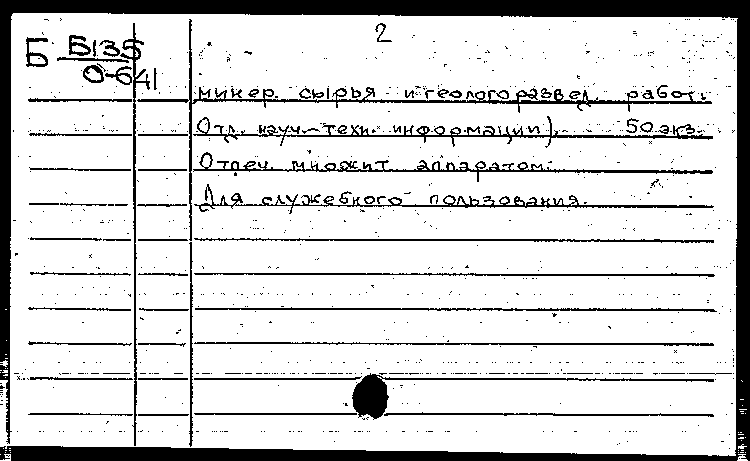 2
Б Б135
О-641
минер. сырья и геологоразвед. работ.
Отд. науч.-техн. информации). 50 экз.
Отпеч. множит. аппаратом.
Для служебного пользования.